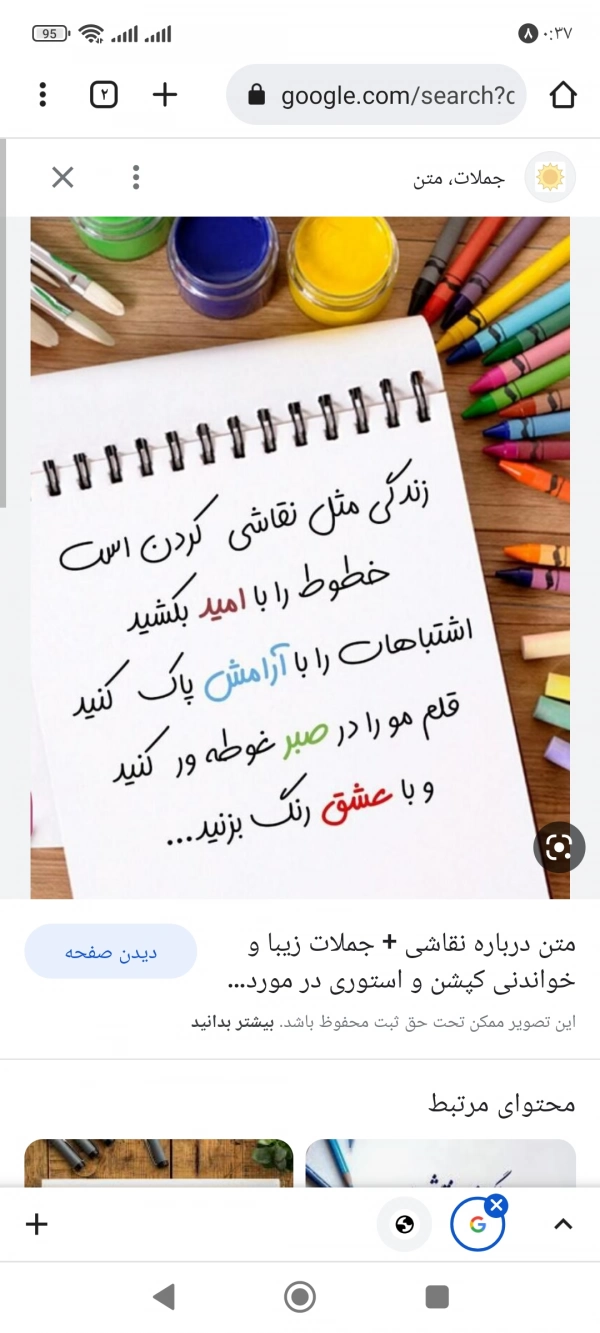 95
۰:۳۷
۸
۲
google.com/search?c
جملات، متن
زندگی مثل نقاشی کردن است
خطوط را با امید بکشید
اشتباهات را با آرامش پاک کنید
قلم مو را در صبر غوطه ور کنید
و با عشق رنگ بزنید...
متن درباره نقاشی + جملات زیبا و
خواندنی کپشن و استوری در مورد...
دیدن صفحه
این تصویر ممکن تحت حق ثبت محفوظ باشد. بیشتر بدانید
محتوای مرتبط